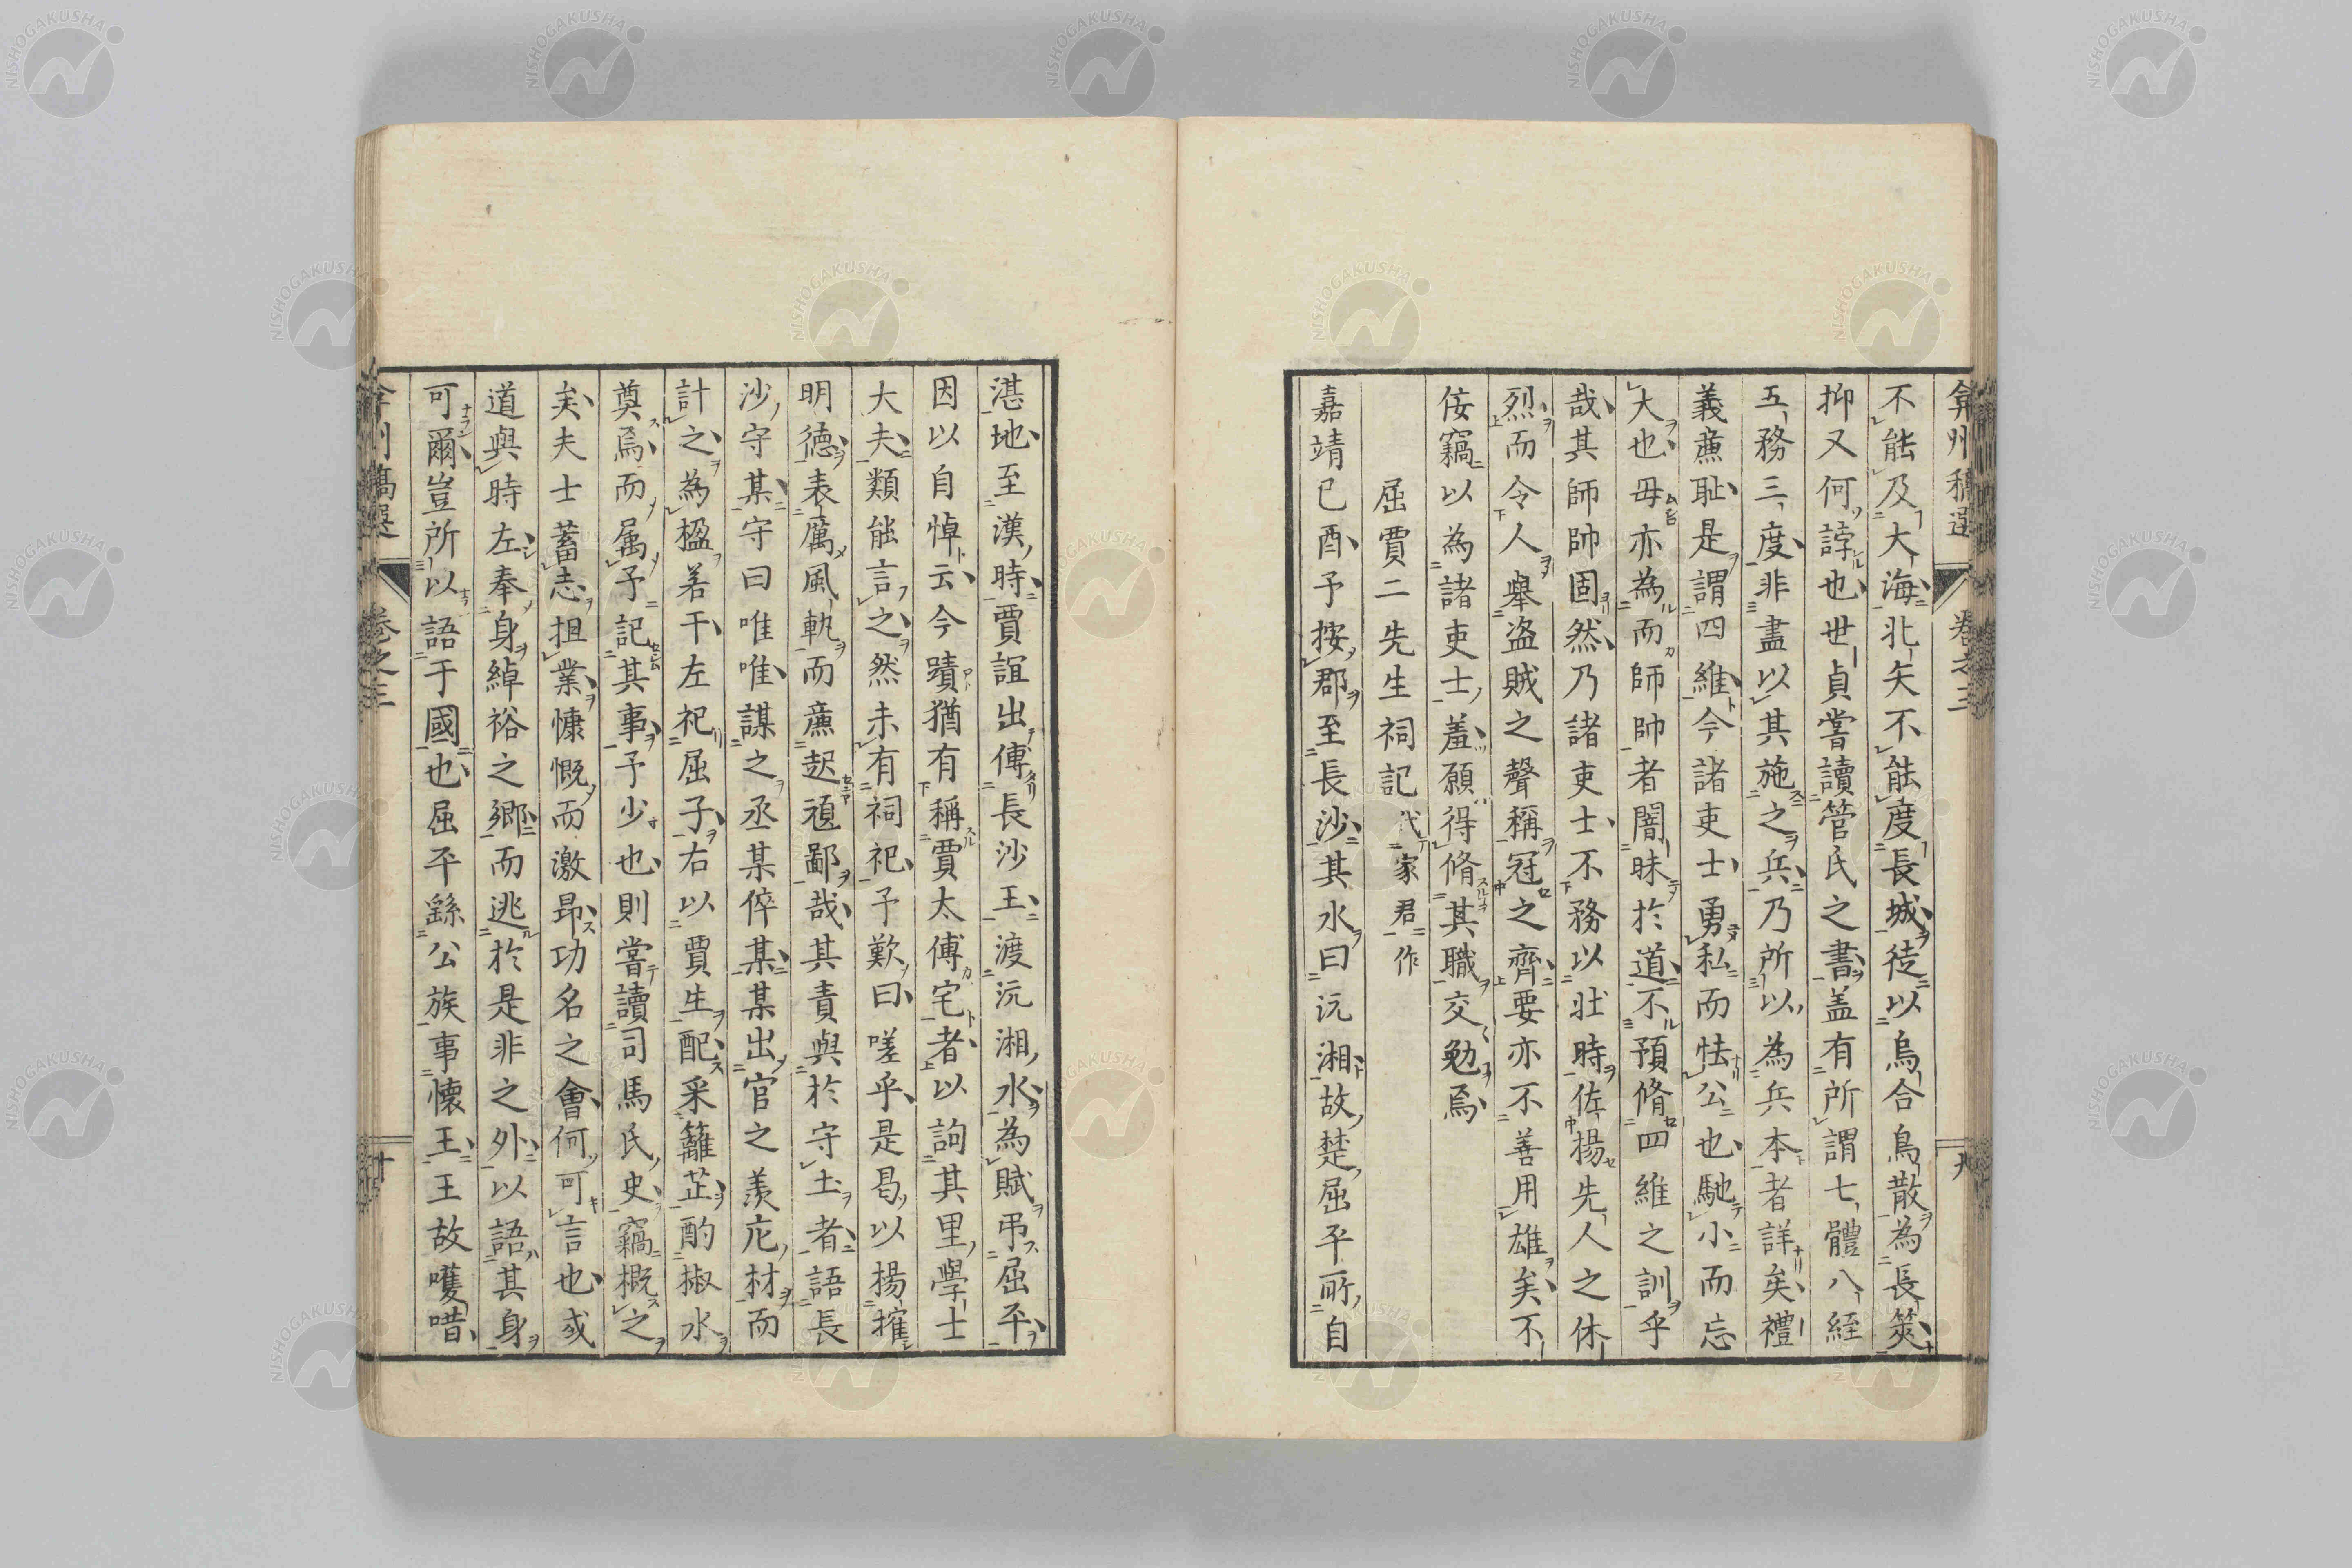 弇州稿選 卷之三 九
不能及大海北矢不能度長城徒以烏合鳥散為長筴
抑又何誖也世貞嘗讀管氏之書盖有所謂七體八經
五務三度非盡以其施之兵乃所以為兵本者詳矣禮
義廉耻是謂四維今諸吏士勇私而怯公也馳小而忘
大也毋亦為而師帥者闇昧於道不預脩四維之訓乎
哉其師帥固然乃諸吏士不務以壯時佐揚先人之休
烈而令人舉盗賊之聲稱冠之齊要亦不善用雄矣不
佞竊以為諸吏士羞願得脩其職交勉焉
屈賈二先生祠記代家君作
嘉靖己酉予按郡至長沙其水曰沅湘故楚屈平所自
湛地至漢時賈誼出傅長沙王渡沅湘水為賦弔屈平
因以自悼云今蹟猶有稱賈太傅宅者以詢其里學士
大夫類能言之然未有祠祀予歎曰嗟乎是曷以揚搉
明德表厲風軌而廉起頑鄙哉其責與於守土者語長
沙守某守曰唯唯謀之丞某倅某某出官之羨庀材而
計之為楹若干左祀屈子右以賈生配采蘺芷酌椒水
奠焉而属予記其事予少也則嘗讀司馬氏史竊概之
矣夫士蓄志抯業慷慨而激昂功名之會何可言也或
道與時左奉身綽裕之郷而逃於是非之外以語其身
可爾豈所以語于國也屈平繇公族事懐王王故嚄唶
弇州稿選 卷之三 十